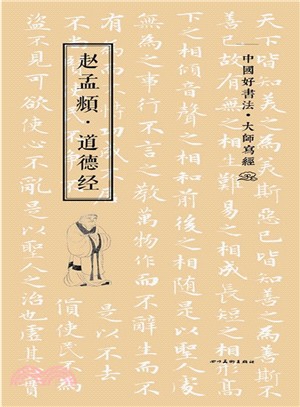 中國好書法·大師寫經
赵孟頫·道德经
天下皆知美之為美斯惡已皆知善之為善斯不
善已故有無之相生難易之相成長短之相形高
下之相傾音聲之相和前後之相隨是以聖人處
無為之事行不言之教萬物作而不辭生而不
是以不去
貨使民不為
盜不見可欲使心不亂是以聖人之治也虛其心實
四川美術出版社